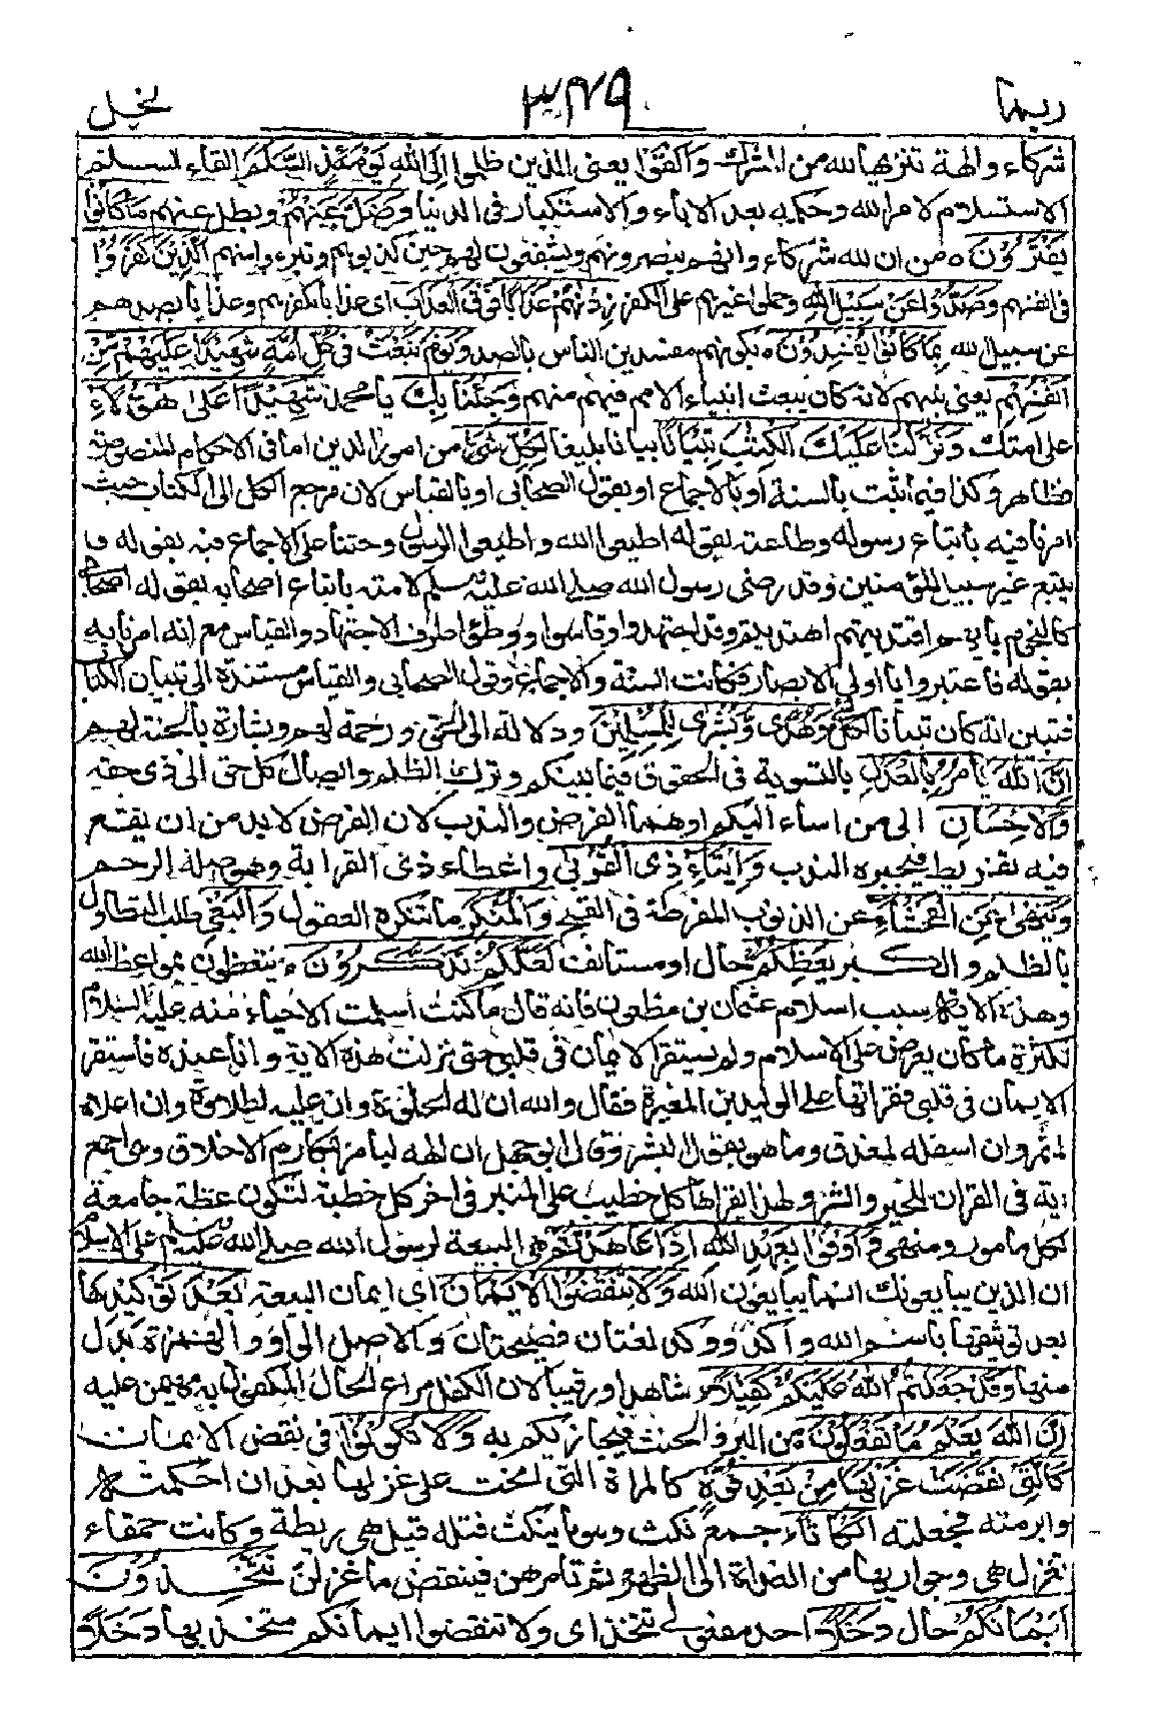 ربما ٣٤٩ نحل
شركاء والهة تنزيها لله من الشرك وَاَلْقَوْا يعنى الذين ظلموا اِلَى اللهِ يَوْمَئِذِ السَّلَمَ القاء السلم
الاستسلام لامر الله وحكمه بعد الاباء والاستكبار فى الدنيا وَضَلَّ عَنْهُمْ وبطل عنهم مَا كَانُوْا
يَفْتَرُوْنَ ه من ان لله شركاء وانهم ينصرونهم ويشفعون لهم حين كذبوهم وتبرءوا منهم اَلَّذِيْنَ كَفَرُوْا
فى انفسهم وَصَدُّوْا عَنْ سَبِيْلِ اللهِ وحملوا غيرهم على الكفر زِدْنٰهُمْ عَذَابًا فَوْقَ الْعَذَابِ اى عذابا بكفرهم وعذابا بصدهم
عن سبيل الله بِمَا كَانُوْا يُفْسِدُوْنَ ه بكونهم مفسدين الناس بالصد وَيَوْمَ نَبْعَثُ فِىْ كُلِّ اُمَّةٍ شَهِيْدًا عَلَيْهِمْ مِّنْ
اَنْفُسِهِمْ يعنى نبيهم لانه كان يبعث انبياء الامم فيهم منهم وَجِئْنَا بِكَ يا محمد شَهِيْدًا عَلٰى هٰؤُلَاءِ
على امتك وَنَزَّلْنَا عَلَيْكَ الْكِتٰبَ تِبْيَانًا بيانا بليغا لِكُلِّ شَىْءٍ من امور الدين اما فى الاحكام المنصوصة
فظاهر وكذا فيما ثبت بالسنة او بالاجماع او بقول الصحابى او بالقياس لان مرجع الكل الى الكتاب حيث
امرنا فيه باتباع رسوله وطاعته بقوله اطيعوا الله واطيعوا الرسول وحثنا على الاجماع فيه بقوله و
يتبع غير سبيل المؤمنين وقد رضى رسول الله صلى الله عليه وسلم لامته باتباع اصحابه بقوله اصحابى
كالنجوم بايهم اقتديتم اهتديتم وقد اجتهدوا وقاسوا ووطؤا طرف الاجتهاد والقياس مع انه امرنا به
بقوله فاعتبروا يا اولى الابصار فكانت السنة والاجماع وقول الصحابى والقياس مستندة الى تبيان الكتاب
فتبين انه كان تبيانا لكل وَهُدًى وَّبُشْرٰى لِلْمُسْلِمِيْنَ ودلالة الى الحق ورحمة لهم وبشارة بالجنة لهم
اِنَّ اللهَ يَاْمُرُ بِالْعَدْلِ بالتسوية فى الحقوق فيما بينكم وترك الظلم وايصال كل حق الى ذى حقه
وَالْاِحْسَانِ الى من اساء اليكم او هما الفرض والندب لان الفرض لا بد من ان يقع
فيه تفريط فيجبره الندب وَاِيْتَاءِ ذِى الْقُرْبٰى واعطاء ذى القرابة وهو صلة الرحم
وَيَنْهٰى عَنِ الْفَحْشَاءِ عن الذنوب المفرطة فى القبح وَالْمُنْكَرِ ما تنكره العقول وَالْبَغْىِ طلب التطاول
بالظلم والكبر يَعِظُكُمْ حال او مستانف لَعَلَّكُمْ تَذَكَّرُوْنَ ه تتعظون بمواعظ الله
وهذه الاية سبب اسلام عثمان بن مظعون فانه قال ما كنت اسلمت الا حياء منه عليه السلام
لكثرة ما كان يعرض على الاسلام ولم يستقر الايمان فى قلبى حتى نزلت هذه الاية وانا عنده فاستقر
الايمان فى قلبى فقراتها على الوليد بن المغيرة فقال والله ان له لحلاوة وان عليه لطلاوة وان اعلاه
لمثمر وان اسفله لمغدق وما هو بقول البشر وقال ابو جهل ان الهه ليامر بمكارم الاخلاق وهى اجمع
اية فى القران للخير والشر ولهذا يقراها كل خطيب على المنبر فى اخر كل خطبة لتكون عظة جامعة
لكل مامور ومنهى وَاَوْفُوْا بِعَهْدِ اللهِ اِذَا عَاهَدْتُّمْ هى البيعة لرسول الله صلى الله عليه وسلم على الاسلام
ان الذين يبايعونك انما يبايعون الله وَلَا تَنْقُضُوا الْاَيْمَانَ اى ايمان البيعة بَعْدَ تَوْكِيْدِهَا
بعد توثيقها باسم الله واكد ووكد لغتان فصيحتان والاصل الواو والهمزة بدل
منها وَقَدْ جَعَلْتُمُ اللهَ عَلَيْكُمْ كَفِيْلًا شاهدا ورقيبا لان الكفيل مراع لحال المكفول به مهيمن عليه
اِنَّ اللهَ يَعْلَمُ مَا تَفْعَلُوْنَ ه من البر والحنث فيجازيكم به وَلَا تَكُوْنُوْا فى نقض الايمان
كَالَّتِىْ نَقَضَتْ غَزْلَهَا مِنْ بَعْدِ قُوَّةٍ كالمراة التى انحت على غزلها بعد ان احكمته
وابرمته فجعلته اَنْكَاثًا جمع نكث وهو ما ينكث فتله قيل هى ريطة وكانت حمقاء
تغزل هى وجواريها من الغداة الى الظهر ثم تامرهن فينقضن ما غزلن تَتَّخِذُوْنَ
اَيْمَانَكُمْ حال دَخَلًا احد مفعولى تتخذ اى ولا تنقضوا ايمانكم متخذيها دخلا